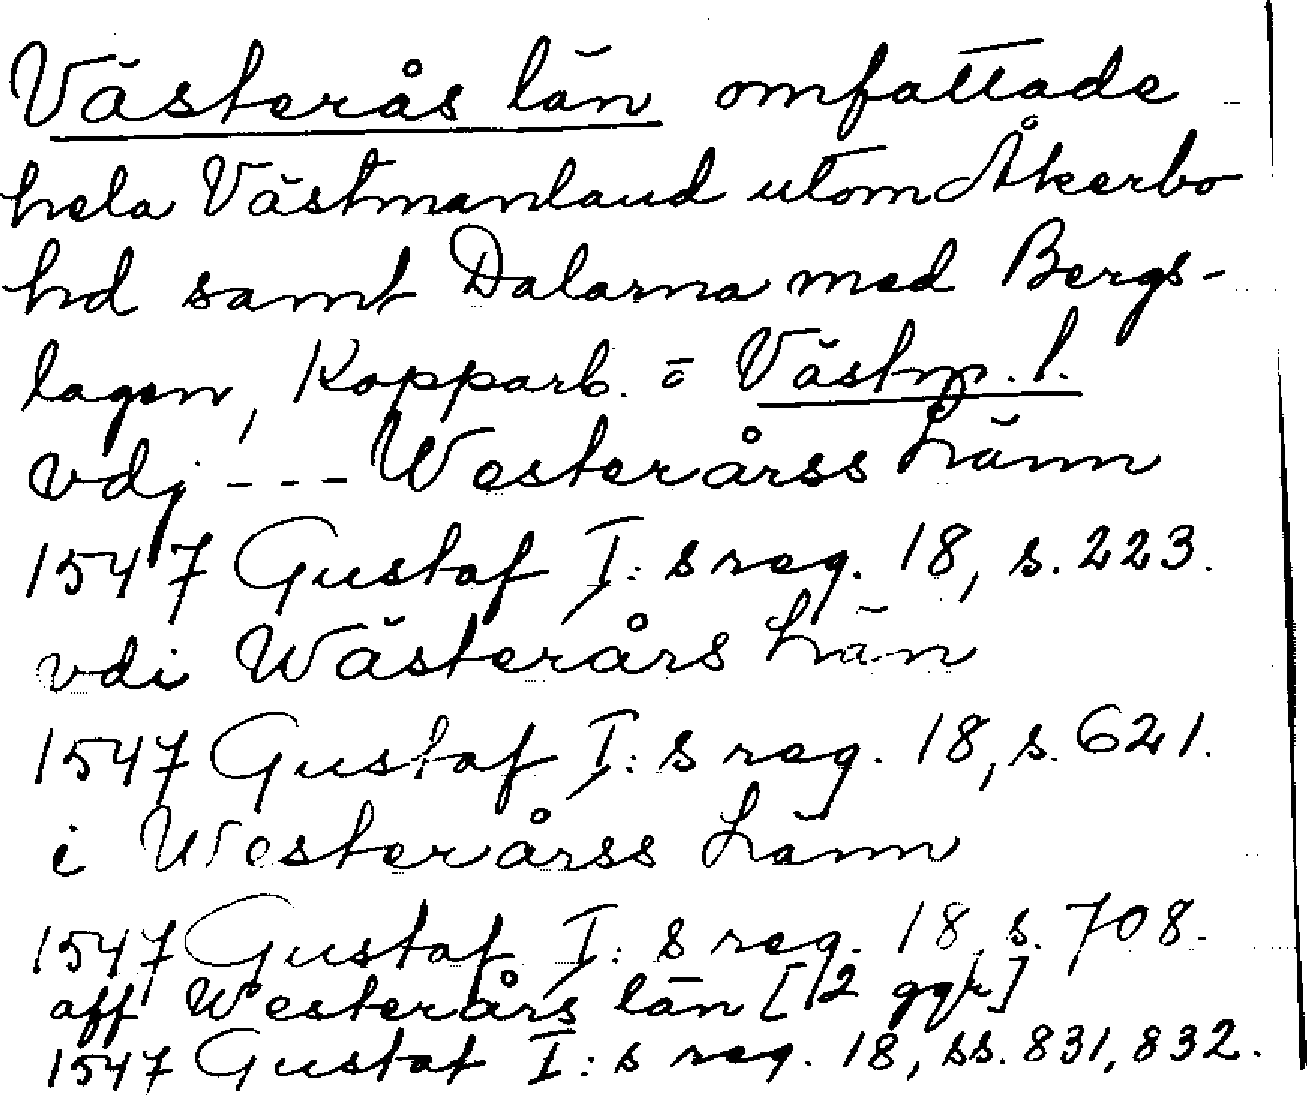 Västerås län omfattade
hela Västmanland utom Åkerbo
hd samt Dalarna med Bergs-
lagen, Kopparb. o Västm. l.
vdj --- Westerårss Länn
1547 Gustaf I:s reg. 18, s. 223.
vdi Wästerårs Län
1547 Gustaf I:s reg. 18, s. 621.
i Westerårss Länn
1547 Gustaf I:s reg. 18, s. 708.
aff Westerårs län [2 ggr]
1547 Gustaf I:s reg. 18, ss. 831, 832.